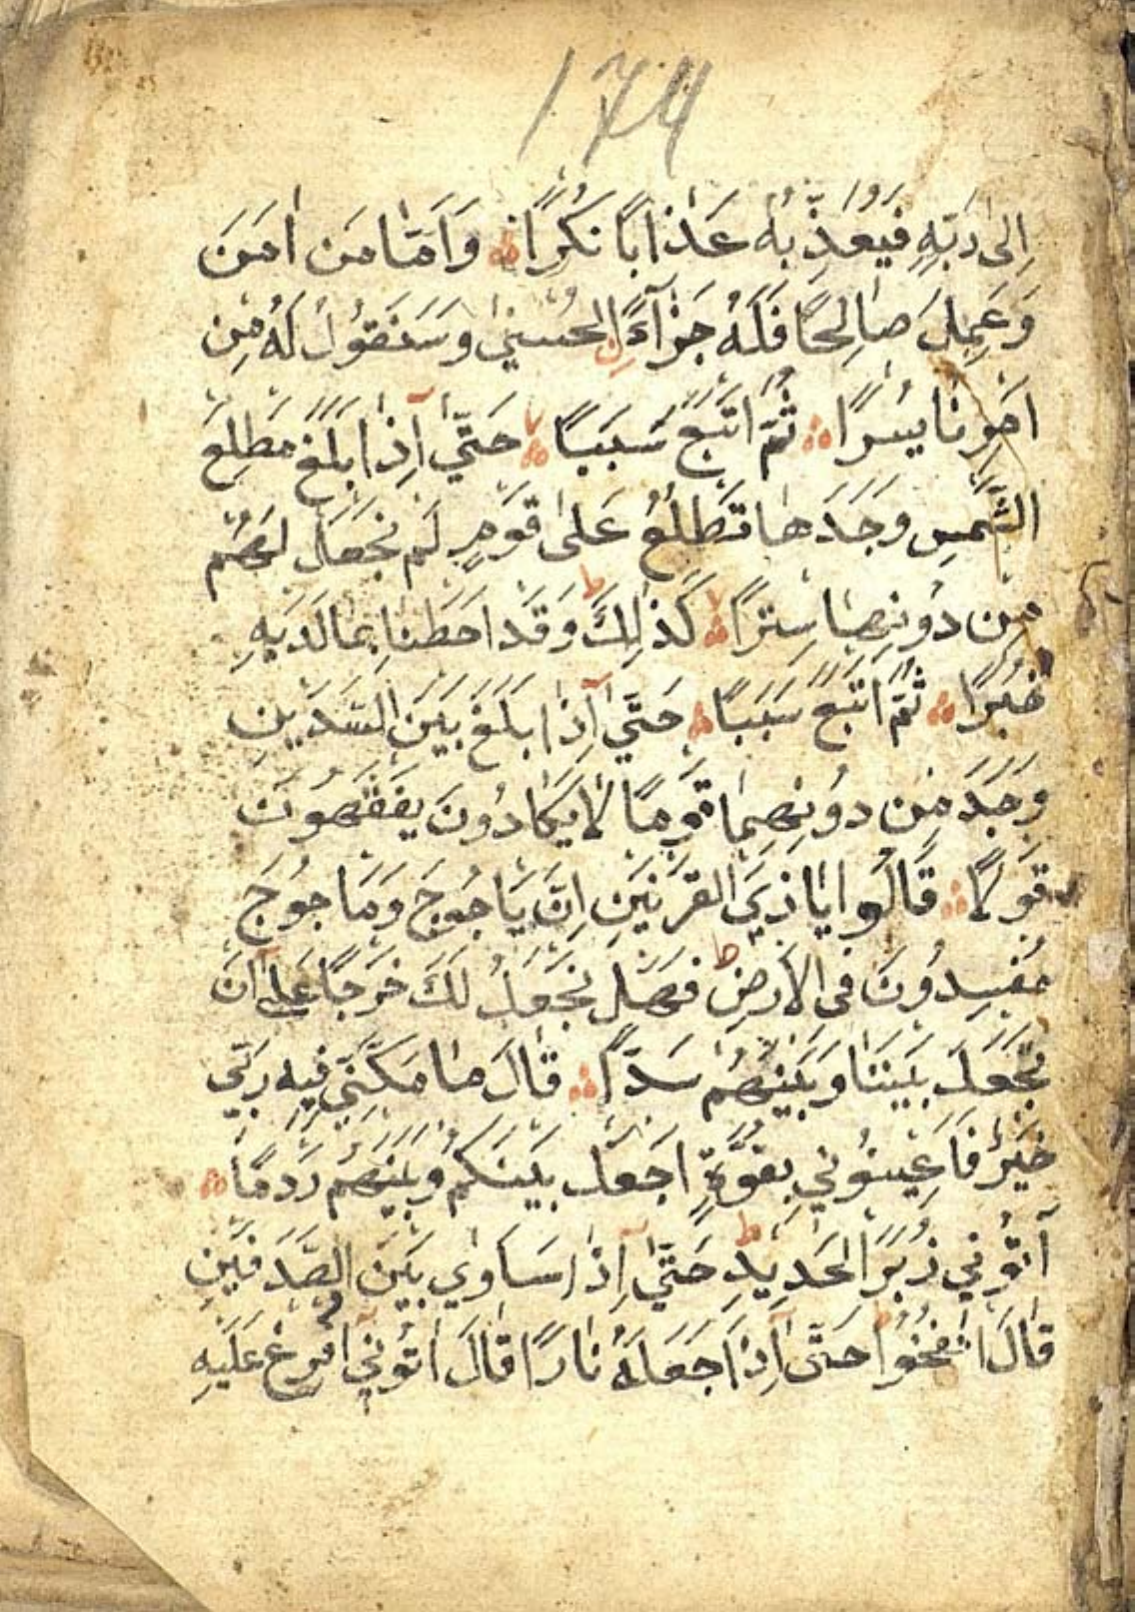 174
اِلٰى رَبِّهٖ فَيُعَذِّبُهُ عَذَابًا نُكْرًا وَاَمَّا مَنْ اٰمَنَ
وَعَمِلَ صَالِحًا فَلَهُ جَزَآءًنِ الْحُسْنٰى وَسَنَقُوْلُ لَهُ مِنْ
اَمْرِنَا يُسْرًا ثُمَّ اَتْبَعَ سَبَبًا حَتّٰى اِذَا بَلَغَ مَطْلِعَ
الشَّمْسِ وَجَدَهَا تَطْلُعُ عَلٰى قَوْمٍ لَمْ نَجْعَلْ لَهُمْ
مِنْ دُوْنِهَا سِتْرًا كَذٰلِكَ ط وَقَدْ اَحَطْنَا بِمَا لَدَيْهِ
خُبْرًا ثُمَّ اَتْبَعَ سَبَبًا حَتّٰى اِذَا بَلَغَ بَيْنَ السَّدَّيْنِ
وَجَدَ مِنْ دُوْنِهِمَا قَوْمًا لَا يَكَادُوْنَ يَفْقَهُوْنَ
قَوْلًا قَالُوا يَا ذِي الْقَرْنَيْنِ اِنَّ يَاجُوْجَ وَمَاجُوْجَ
مُفْسِدُوْنَ فِى الْاَرْضِ ط فَهَلْ نَجْعَلُ لَكَ خَرْجًا عَلٰى اَنْ
تَجْعَلَ بَيْنَنَا وَبَيْنَهُمْ سَدًّا قَالَ مَا مَكَّنِّي فِيْهِ رَبِّي
خَيْرٌ فَاَعِيْنُوْنِي بِقُوَّةٍ اَجْعَلْ بَيْنَكُمْ وَبَيْنَهُمْ رَدْمًا
اٰتُوْنِي زُبَرَ الْحَدِيْدِ ط حَتّٰى اِذَا سَاوٰي بَيْنَ الصَّدَفَيْنِ
قَالَ انْفُخُوْا ط حَتّٰى اِذَا جَعَلَهُ نَارًا قَالَ اٰتُوْنِي اُفْرِغْ عَلَيْهِ